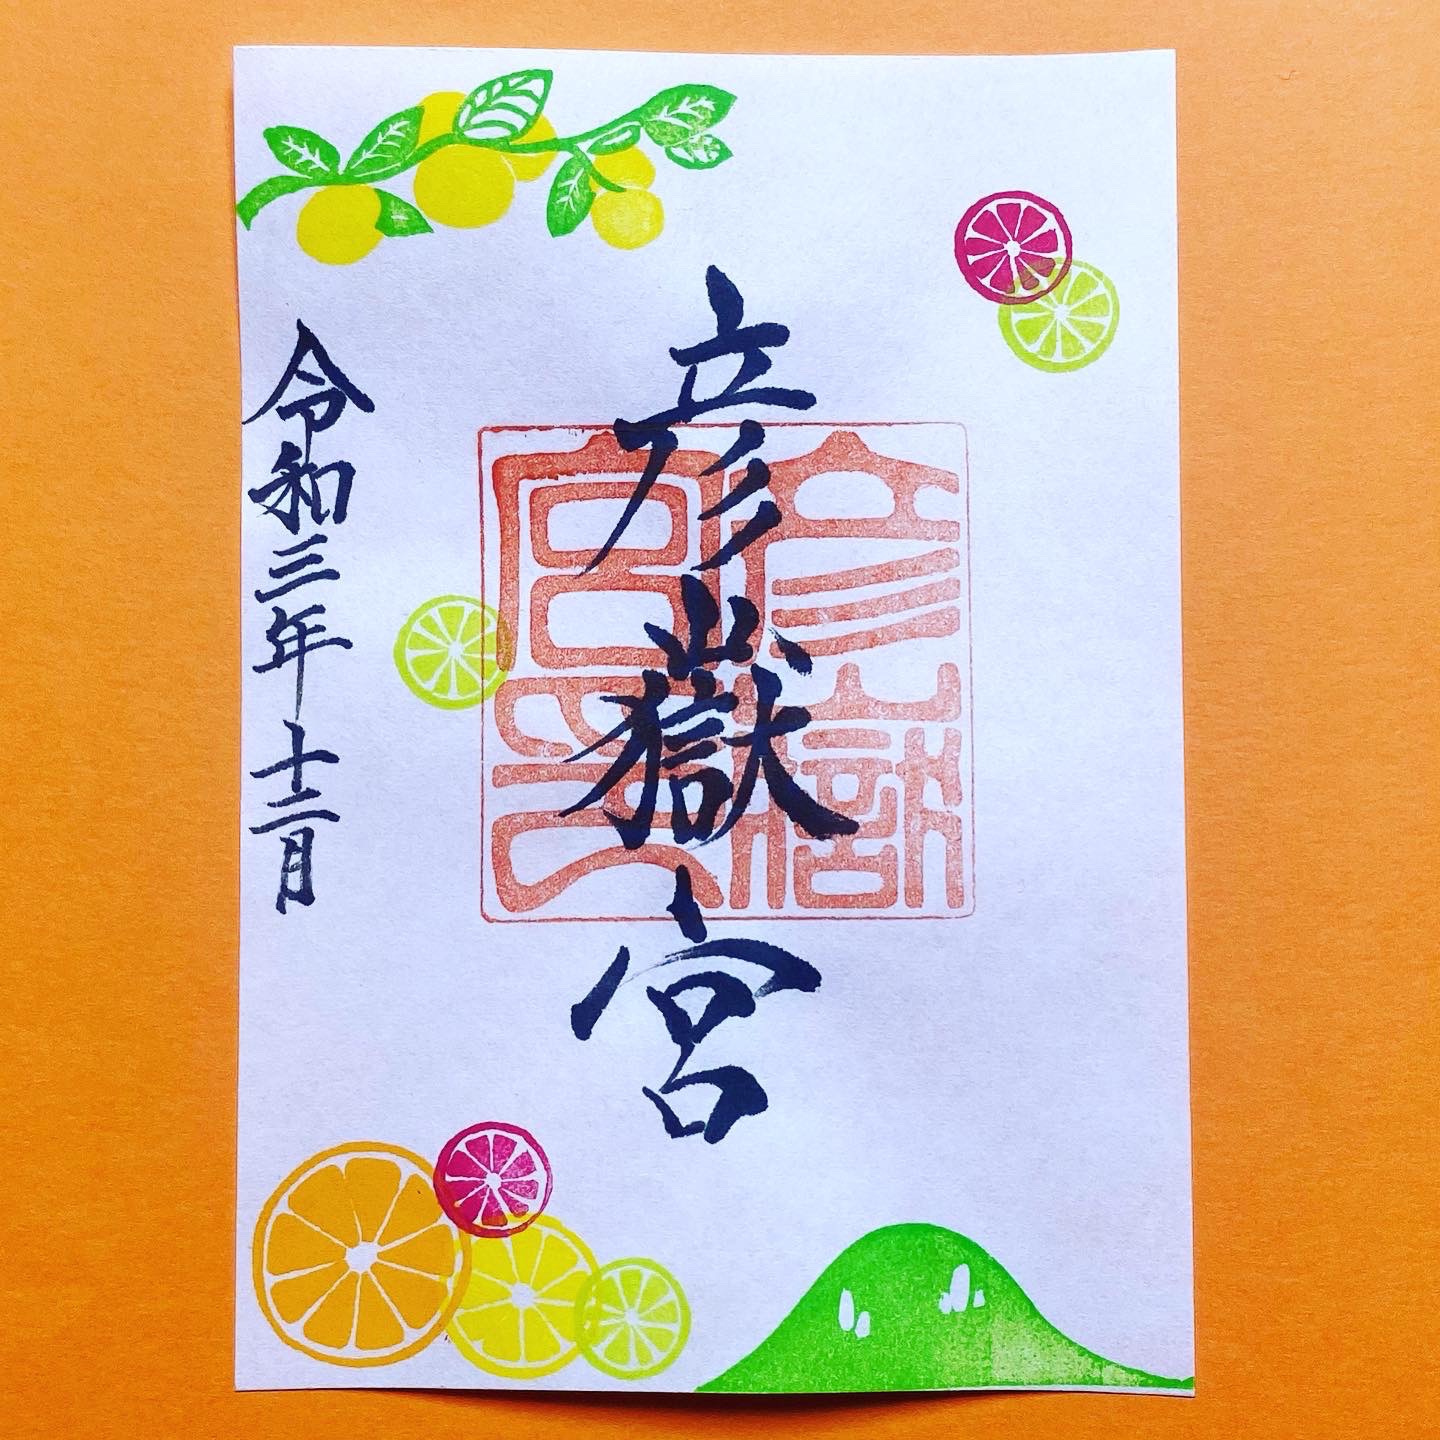 彦嶽宮
彦嶽宮印
令和三年十二月